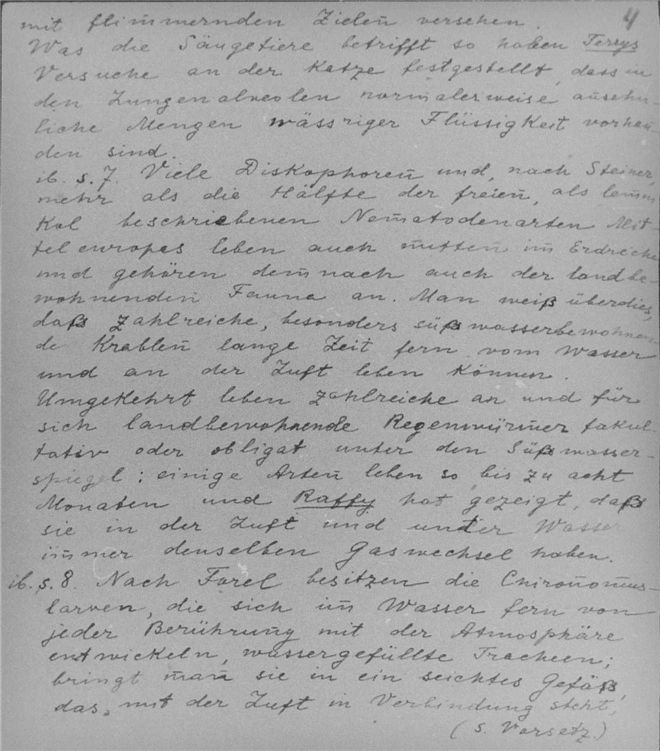 4
mit flimmernden Zielen versehen.
Was die Säugetiere betrifft so haben Terrys
Versuche an der Katze festgestellt, dass in
den Lungenalveolen normalerweise ansehn-
liche Mengen wässriger Flüssigkeit vorhan-
den sind.
ib. s. 7. Viele Diskophoren und, nach Steiner,
mehr als die Hälfte der freien, als
beschriebenen Nematodenarten Mit-
teleuropas leben auch mitten im Erdreiche
und gehören demnach auch der landbe-
wohnenden Fauna an. Man weiß überdies,
daß zahlreiche, besonders süßwasserbewohnen-
de Krabben lange Zeit fern vom Wasser
und an der Luft leben können.
Umgekehrt leben zahlreiche an und für
sich landbewohnende Regenwürmer fakul-
tativ oder obligat unter den Süßwasser-
spiegel; einige Arten leben so bis zu acht
Monaten und Raffy hat gezeigt, daß
sie in der Luft und unter Wasser
immer denselben Gaswechsel haben.
ib. s. 8. Nach Forel besitzen die Chironomus-
larven, die sich im Wasser fern von
jeder Berührung mit der Atmosphäre
entwickeln, wassergefüllte Tracheen;
bringt man sie in ein seichtes Gefäß,
das, mit der Luft in Verbindung steht,
(s. Vorsetz.)